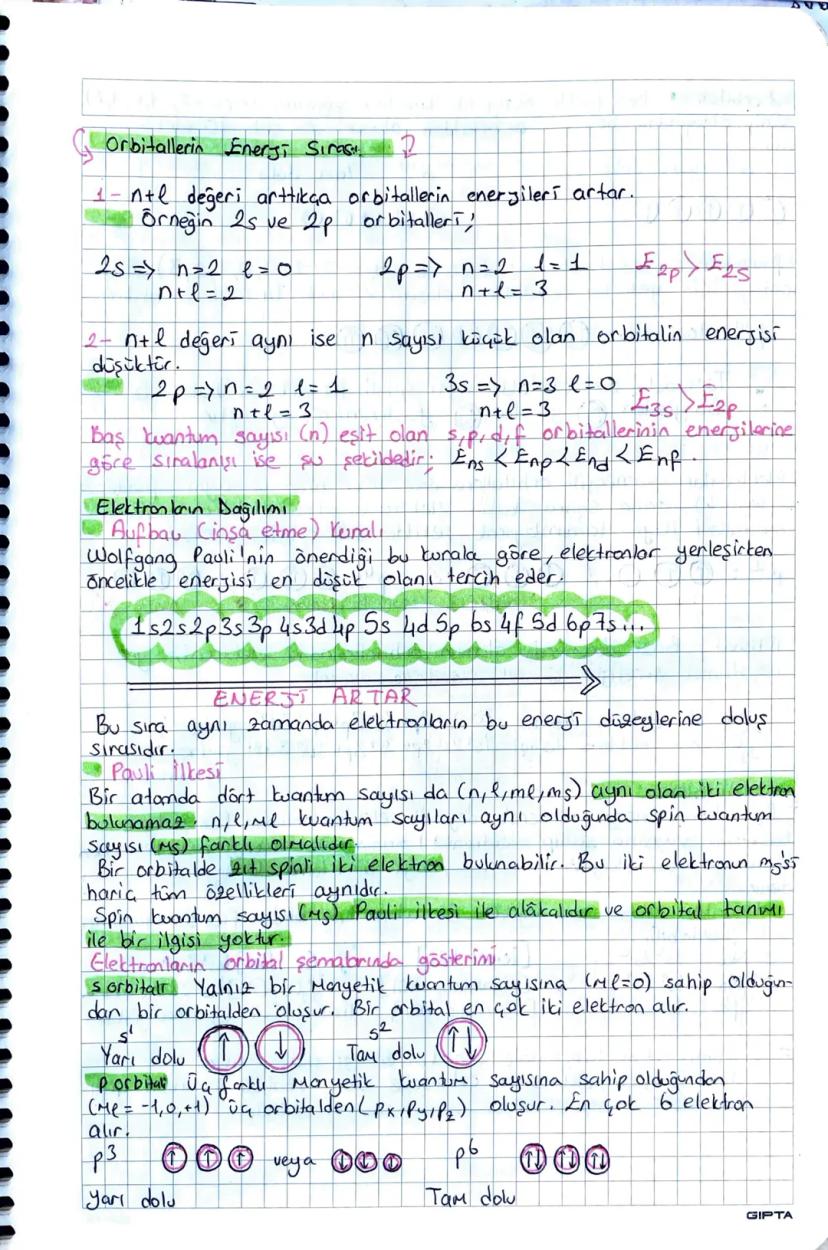 Orbitallerin Enerji Sırası
1- n+l değeri arttıkça orbitallerin enerjileri artar.
Örneğin 2s ve 2p orbitalleri;
2s => n=2 l=0 2p => n=2 l=1 E2p > E2s
n+l=2 n+l=3
2- n+l değeri aynı ise n sayısı küçük olan orbitalin enerjisi
düşüktür.
2p => n=2 l=1 3s => n=3 l=0
n+l=3 n+l=3 E3s > E2p
Baş kuantum sayısı (n) eşit olan s,p,d,f orbitallerinin enerjilerine
göre sıralanışı ise şu şekildedir; Ens < Enp < End < Enf.
Elektronların Dağılımı
Aufbau (inşa etme) Kuralı
Wolfgang Pauli'nin önerdiği bu kurala göre, elektronlar yerleşirken
öncelikle enerjisi en düşük olanı tercih eder.
1s2s2p3s3p 4s3d4p 5s 4d 5p 6s 4f 5d 6p7s...
ENERJİ ARTAR
Bu sıra aynı zamanda elektronların bu enerji düzeylerine doluş
sırasıdır.
Pauli İlkesi
Bir atomda dört kuantum sayısı da (n,l,ml,ms) aynı olan iki elektron
bulunamaz. n,l,ml kuantum sayıları aynı olduğunda spin kuantum
sayısı (ms) farklı olmalıdır.
Bir orbitalde zıt spinli iki elektron bulunabilir. Bu iki elektronun ms'si
hariç tüm özellikleri aynıdır.
Spin kuantum sayısı (ms) Pauli ilkesi ile alâkalıdır ve orbital tanımı
ile bir ilgisi yoktur.
Elektronların orbital şemalarında gösterimi:
s orbitali Yalnız bir Manyetik kuantum sayısına (ml=0) sahip olduğun-
dan bir orbitalden oluşur. Bir orbital en çok iki elektron alır.
s1 s2
Yarı dolu ↑ ↓ Tam dolu ↑↓
p orbital Üç farklı Manyetik kuantum sayısına sahip olduğundan
(ml = -1,0,+1) üç orbitalden (px,py,pz) oluşur. En çok 6 elektron
alır.
p3 ↑ ↑ ↑ veya ↓ ↓ ↓ p6 ↑↓ ↑↓ ↑↓
Yarı dolu Tam dolu
GIPTA